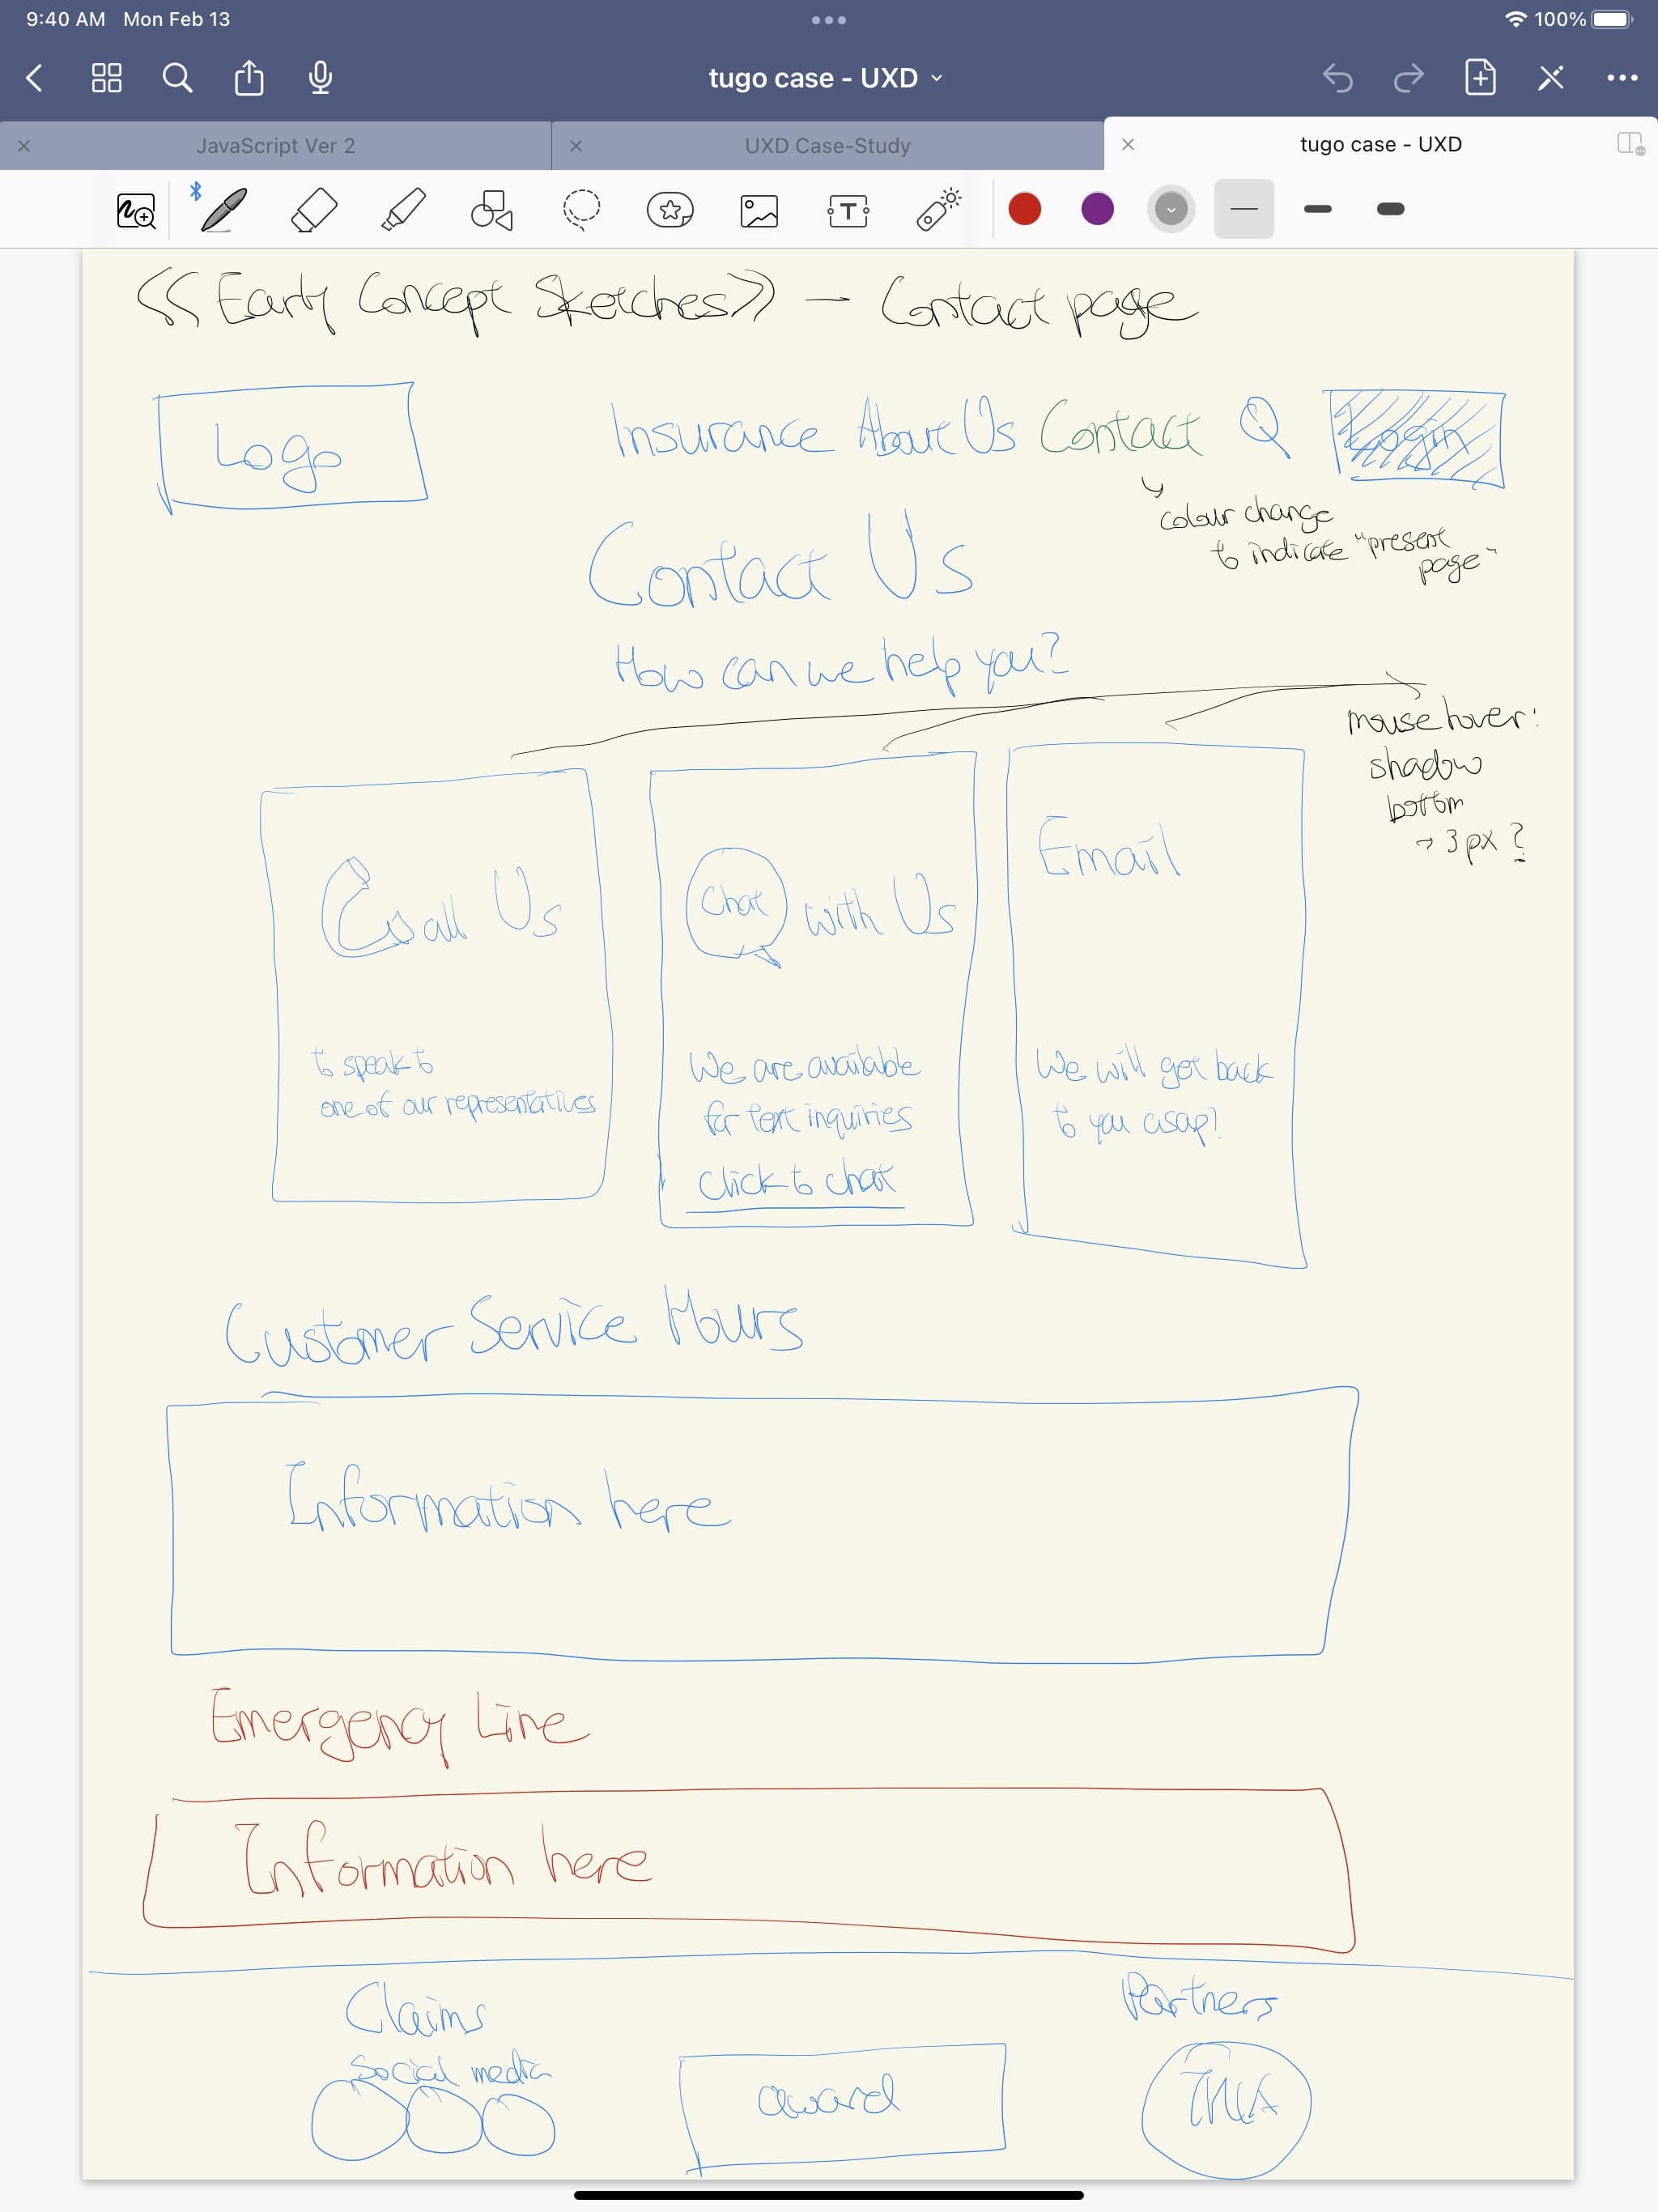 9:40 AM Mon Feb 13
100%
tugo case - UXD
JavaScript Ver 2
UXD Case-Study
tugo case - UXD
T
<<Early Concept Sketches>> → Contact page
Logo
Insurance About Us Contact
Login
colour change
to indicate "present
page"
Contact Us
How can we help you?
mouse hover:
shadow
bottom
→ 3px?
Call Us
to speak to
one of our representatives
Chat with Us
We are available
for text inquiries
click to chat
Email
We will get back
to you asap!
Customer Service Hours
Information here
Emergency Line
Information here
Claims
Social media
award
Partners